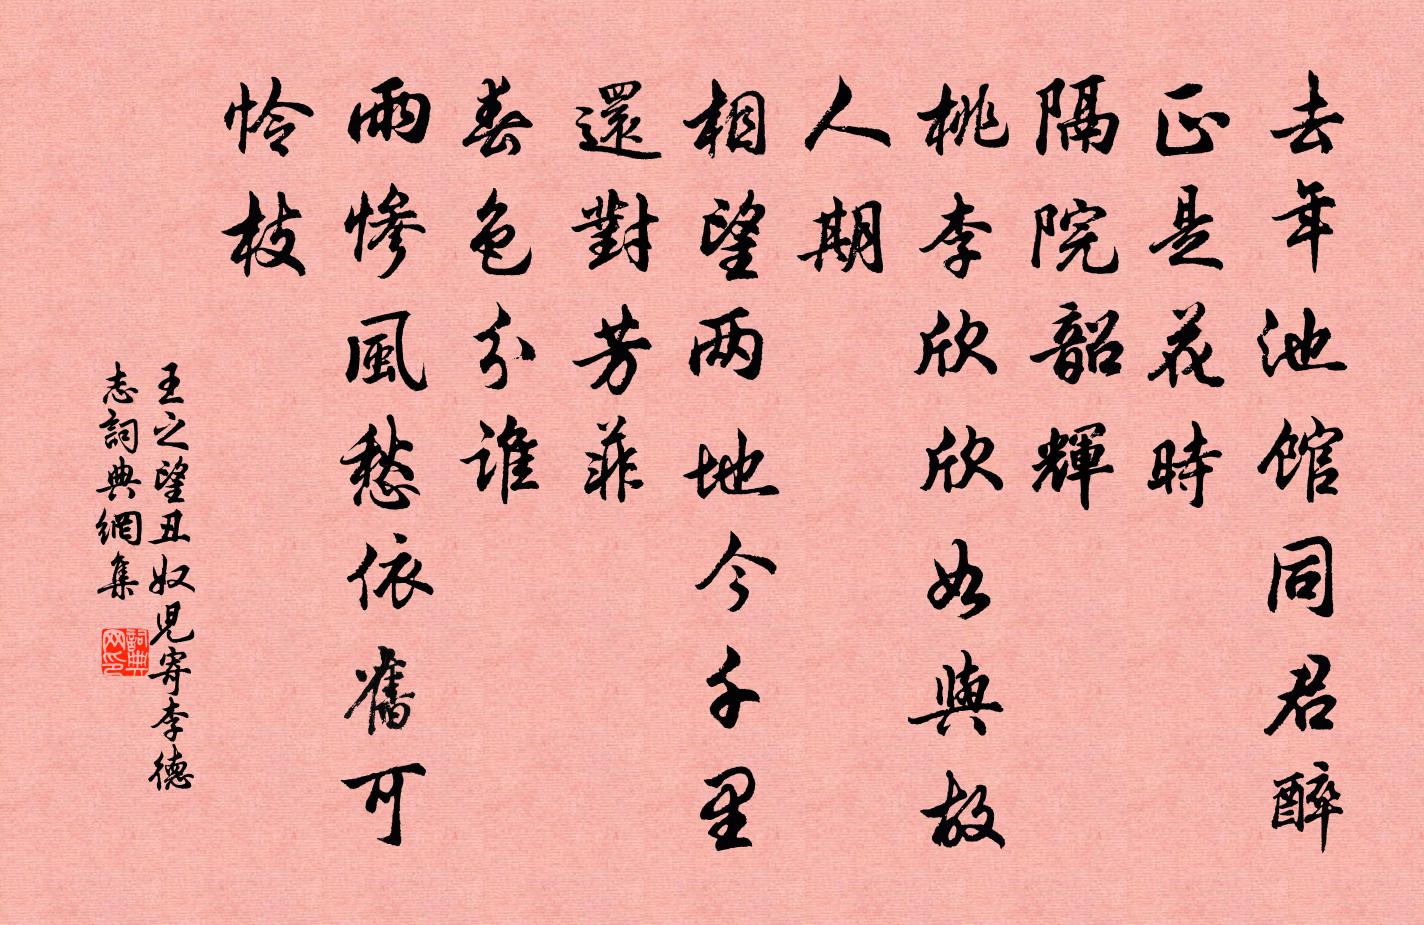 去年池馆同君醉
正是花時
隔院韶輝
桃李欣欣如與故
人期
相望两地今千里
還對芳菲
春色分誰
雨慘風愁依舊可
怜枝
王之望丑奴児寄李德
志詞典網集
詞典网印